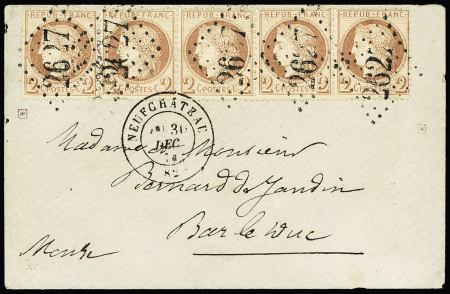 REPUB·FRANC· REPUB·FRANC· REPUB·FRANC· REPUB·FRANC· REPUB·FRANC·
2627 2627 2627 2627 2627
2 POSTES 2 2 POSTES 2 2 POSTES 2 2 POSTES 2 2 POSTES 2
NEUFCHÂTEAU
30
DEC.
74
82
Madame de Monsieur
Bernard de Jandin
Bar le Duc
Meuse